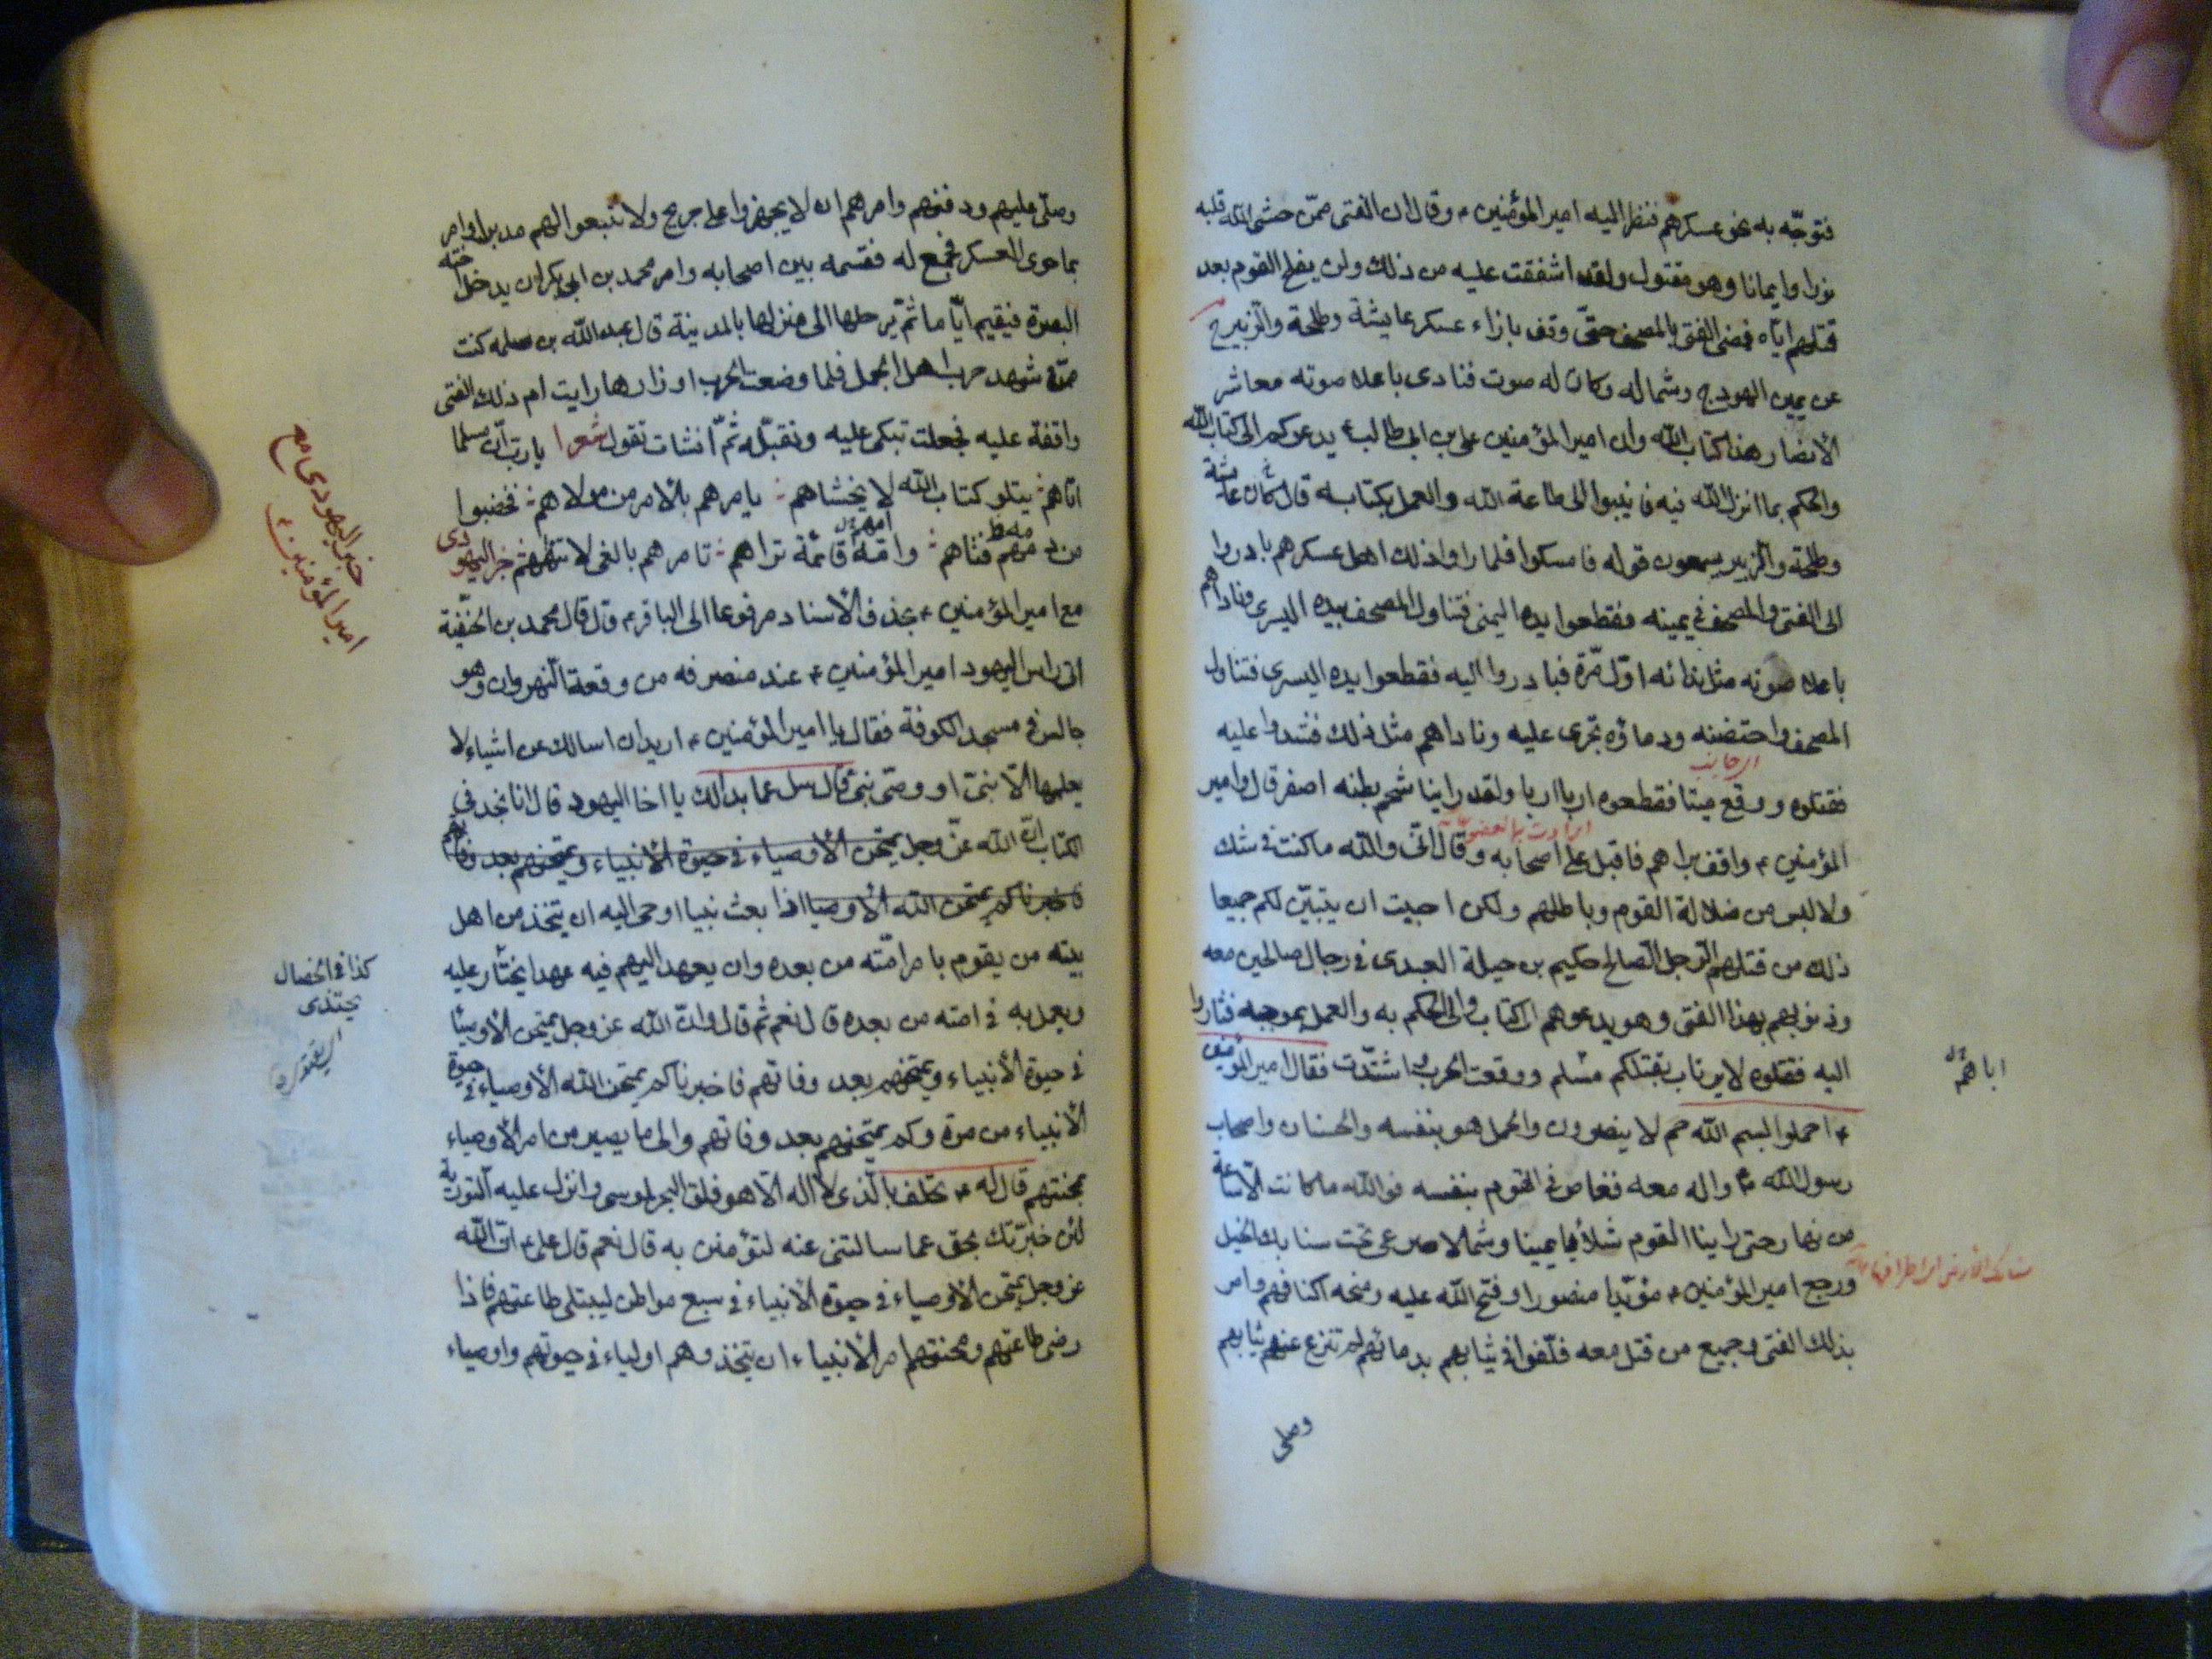 فتوجّه به نحو عسكرهم فنظر اليه امير المؤمنين ء وقال ان الفتى ممّن حشى الله قلبه
نورا وايمانا وهو مقتول ولقد اشفقت عليه من ذلك ولن يفلح القوم بعد
قتلهم ايّاه فمضى الفتى بالمصحف حتّى وقف بازاء عسكر عايشة وطلحة والزبير ح
عن يمين الهودج وشماله وكان له صوت فنادى باعلا صوته معاشر
الأنصار هذا كتاب الله وان امير المؤمنين على بن ابى طالب ء يدعوكم الى كتاب الله
والحكم بما انزل الله فيه فانيبوا الى طاعة الله والعمل بكتابه قال كان عايشة
وطلحة والزبير يسمعون قوله فامسكوا فلما راوا ذلك اهل عسكرهم بادروا
الى الفتى والمصحف فى يمينه فقطعوا يده اليمنى فتناول المصحف بيده اليسرى وناداهم
باعلا صوته مثل ندائه اوّل مرّة فبادروا اليه فقطعوا يده اليسرى فتناول
المصحف واحتضنه ودماؤه تجرى عليه وناداهم مثل ذلك فشدوا عليه
فقتلوه ووقع ميتا فقطعوه اربا اربا ولقد راينا شحم بطنه اصفر قال وامير
المؤمنين ء واقف يراهم فاقبل على اصحابه وقال انّى والله ما كنت فى شك
ولا لبس من ضلالة القوم وباطلهم ولكن احببت ان يتبيّن لكم جميعا
ذلك من قتلهم الرّجل الصّالح حكيم بن جبلة العبدى فى رجال صالحين معه
وذنوبهم بهذا الفتى وهو يدعوهم الى كتاب والى الحكم به والعمل بموجبه فثاروا
اليه فقتلوه لا يرتاب بقتلكم مسلم ووقعت الحرب اشتدّت فقال امير المؤمنين
ء احملوا بسم الله حم لا ينصرون وحمل هو بنفسه والحسنان واصحاب
رسول الله ص واله معه فغاص فى القوم بنفسه فو الله ما كانت الّا ساعة
من نهار حتى راينا القوم شلايا يمينا وشمالا صرعى تحت سنابك الخيل
ورجع امير المؤمنين ء مؤيّدا منصورا وفتح الله عليه ومنحه اكتافهم وامر
بذلك الفتى وجميع من قتل معه فلّفوا فى ثيابهم بدمائهم لم تنزع عنهم ثيابهم
وصلى
اباهم
وصلّى عليهم ودفنهم وامرهم ان لا يجهزوا على جريح ولا يتبعوا لهم مدبرا وامر
بما حوى العسكر فجمع له فقسمه بين اصحابه وامر محمد بن ابى بكر ان يدخل اخته
البصرة فيقيم ايّاما ثمّ يرحلها الى منزلها بالمدينة قال عبد الله بن سلمه كنت
ممّن شهد حرب اهل الجمل فلما وضعت الحرب اوزارها رايت ام ذلك الفتى
واقفة عليه فجعلت تبكى عليه وتقبّله ثمّ انشات تقول شعرا يا ربّ انّ مسلما
اتاهم يتلو كتاب الله لا يخشاهم يامرهم بالامر من مولاهم فخضبوا
من دمهم قناهم وامّه قائمة تراهم تامرهم بالغى لا تنهاهم خبر اليهودى
مع امير المؤمنين ء بحذف الأسناد مرفوعا الى الباقر ء قال قال محمد بن الحنفيّة
اتى راس اليهود امير المؤمنين ء عند منصرفه من وقعة النّهروان وهو
جالس فى مسجد الكوفة فقال يا امير المؤمنين ء اريد ان اسالك عن اشياء لا
يعلمها الّا نبىّ او وصىّ نبىّ قال سل عما بدا لك يا اخا اليهود قال انا نجد فى
الكتاب انّ الله عزّ وجل يمتحن الأوصياء فى حيوة الأنبياء ويمتحنهم بعد وفاتهم
فاخبرنا كم يمتحن الله الأوصيا اذا بعث نبيا اوحى اليه ان يتخذ من اهل
بيته من يقوم بامر امّته من بعده وان يعهد اليهم فيه عهدا يختار عليه
ويعمل به فى امته من بعده قال نعم ثم قال وانّ الله عز وجل يمتحن الأوصيا
فى حيوة الأنبياء ويمتحنهم بعد وفاتهم فاخبرنا كم يمتحن الله الأوصياء فى حيوة
الأنبياء من مرة وكم يمتحنهم بعد وفاتهم والى ما يصير من امر الأوصياء
بمحنتهم قال له ء تحلف بالّذى لا اله الّا هو فلق البحر لموسى وانزل عليه التورية
لئن خبّرتك بحق عما سالتنى عنه لتؤمنن به قال نعم قال على ء انّ الله
عز وجل يمتحن الأوصياء فى حيوة الأنبياء فى سبع مواطن ليبتلى طاعتهم فاذا
رضى طاعتهم ومحنتهم امر الأنبياء ان يتخذوهم اولياء فى حيوتهم واوصياء
خبر اليهودى مع
امير المؤمنين ء
كذا فى الخصال
يحتذى